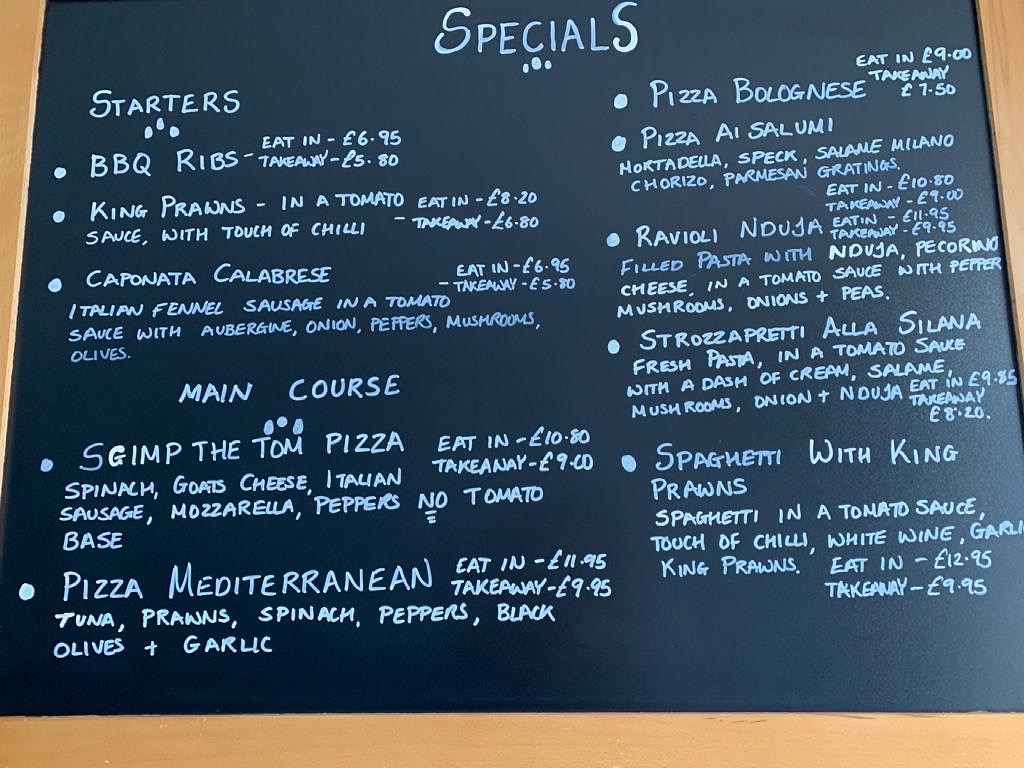 SPECIALS
STARTERS
BBQ RIBS - EAT IN - £6.95
TAKEAWAY - £5.80
KING PRAWNS - IN A TOMATO EAT IN - £8.20
SAUCE, WITH TOUCH OF CHILLI - TAKEAWAY - £6.80
CAPONATA CALABRESE EAT IN - £6.95
- TAKEAWAY - £5.80
ITALIAN FENNEL SAUSAGE IN A TOMATO
SAUCE WITH AUBERGINE, ONION, PEPPERS, MUSHROOMS,
OLIVES.
MAIN COURSE
SGIMP THE TOM PIZZA EAT IN - £10.80
TAKEAWAY - £9.00
SPINACH, GOATS CHEESE, ITALIAN
SAUSAGE, MOZZARELLA, PEPPERS NO TOMATO
BASE
PIZZA MEDITERRANEAN EAT IN - £11.95
TAKEAWAY - £9.95
TUNA, PRAWNS, SPINACH, PEPPERS, BLACK
OLIVES + GARLIC
EAT IN £9.00
PIZZA BOLOGNESE TAKEAWAY
£7.50
PIZZA AI SALUMI
MORTADELLA, SPECK, SALAME MILANO
CHORIZO, PARMESAN GRATINGS.
EAT IN - £10.80
TAKEAWAY - £9.00
RAVIOLI NDUJA EAT IN - £11.95
TAKEAWAY - £9.95
FILLED PASTA WITH NDUJA, PECORINO
CHEESE, IN A TOMATO SAUCE WITH PEPPER
MUSHROOMS, ONIONS + PEAS.
STROZZAPRETTI ALLA SILANA
FRESH PASTA, IN A TOMATO SAUCE
WITH A DASH OF CREAM, SALAME,
MUSHROOMS, ONION + NDUJA EAT IN £9.85
TAKEAWAY
£8.20.
SPAGHETTI WITH KING
PRAWNS
SPAGHETTI IN A TOMATO SAUCE,
TOUCH OF CHILLI, WHITE WINE, GARLI
KING PRAWNS. EAT IN - £12.95
TAKEAWAY - £9.95